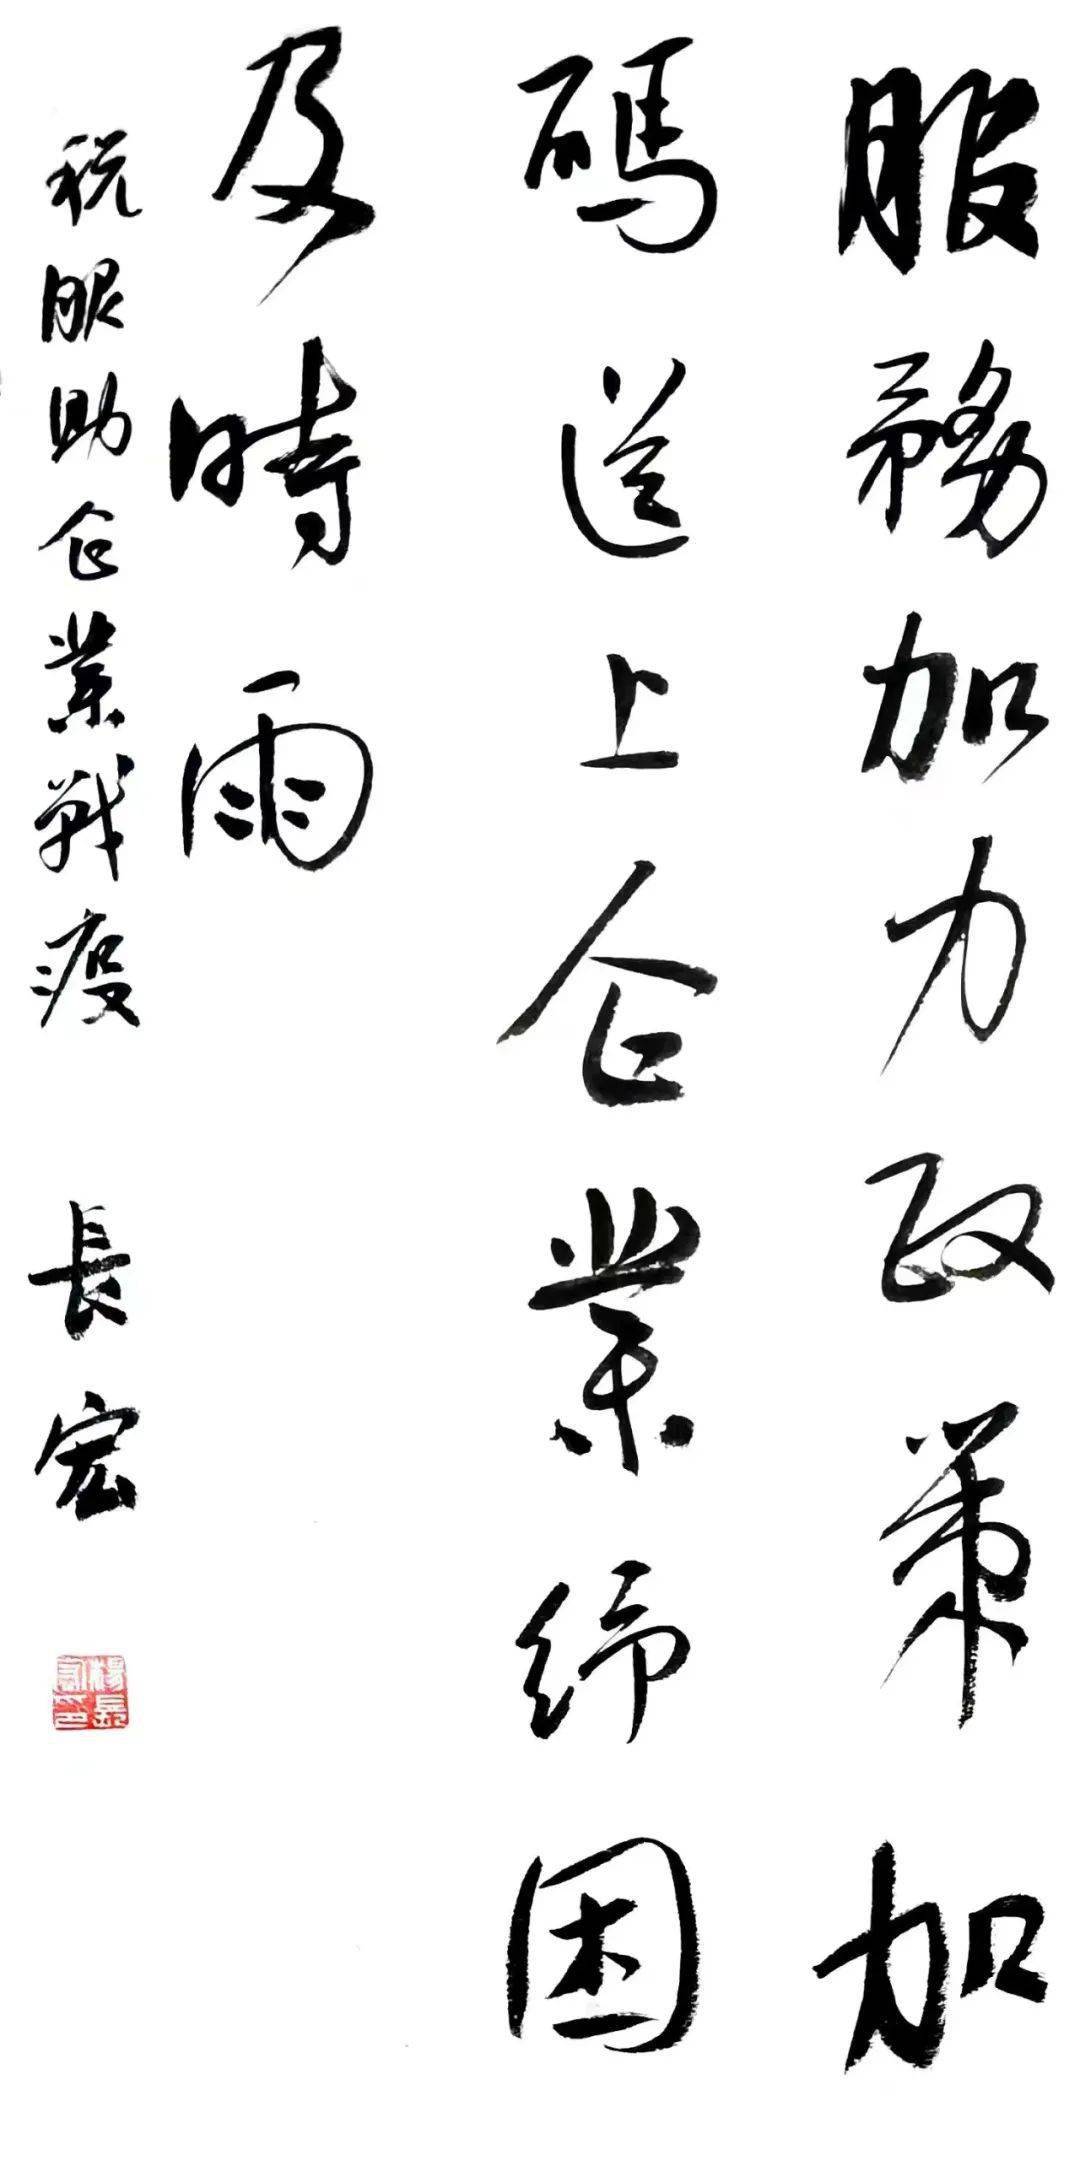 服務加力政策加
碼送上企業紓困
及時雨
税服助企業戰疫 長宏
楊長宏印